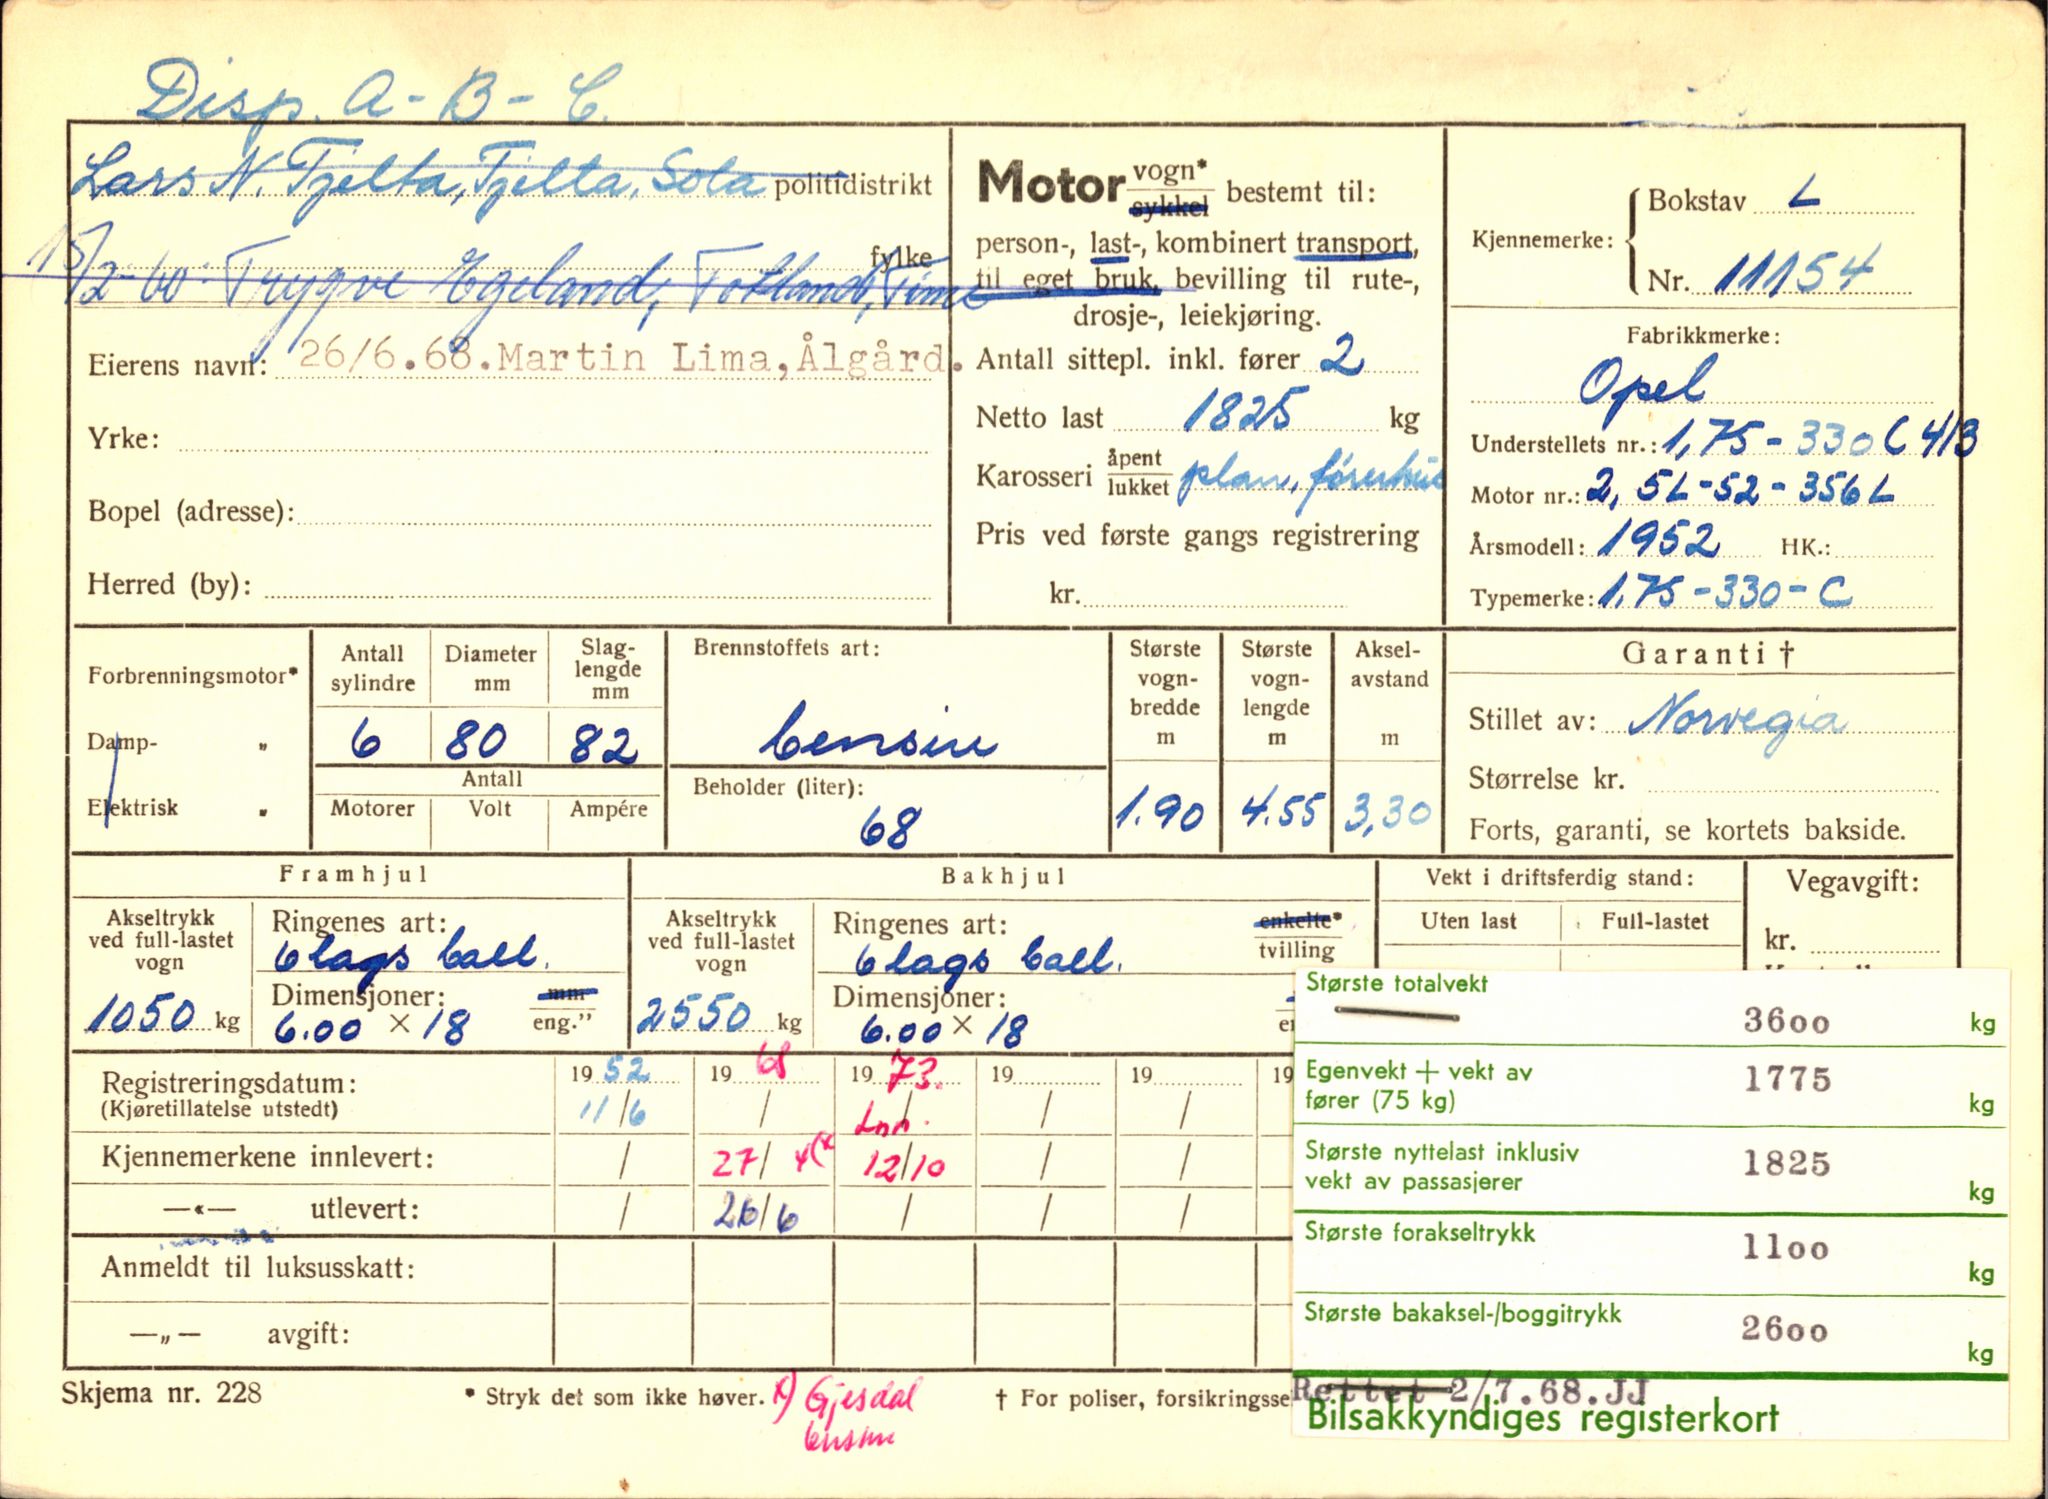 Disp. A - B - C.
Lars N. Tjelta, Tjelta, Sola politidistrikt
15/2-60 Trygve Egeland, Fotland, Time fylke
Eierens navn: 26/6.68.Martin Lima,Ålgård.
Yrke:
Bopel (adresse):
Herred (by):
Motor vogn* sykkel bestemt til:
person-, last-, kombinert transport,
til eget bruk, bevilling til rute-,
drosje-, leiekjøring.
Antall sittepl. inkl. fører 2
Netto last 1825 kg
Karosseri åpent lukket plan, førerhus
Pris ved første gangs registrering
kr.
Kjennemerke: Bokstav L
Nr. 11154
Fabrikkmerke:
Opel
Understellets nr.: 1,75-330 C 413
Motor nr.: 2,5L-52-356L
Årsmodell: 1952 HK.:
Typemerke: 1,75-330-C
Forbrenningsmotor*
Damp- „
Elektrisk „
Antall sylindre
6
Diameter mm
80
Slag-lengde mm
82
Antall
Motorer Volt Ampére
Brennstoffets art:
bensin
Beholder (liter):
68
Største vogn-bredde m
1.90
Største vogn-lengde m
4.55
Aksel-avstand m
3,30
Garanti †
Stillet av: Norvegia
Størrelse kr.
Forts, garanti, se kortets bakside.
Framhjul
Akseltrykk ved full-lastet vogn
1050 kg
Ringenes art:
6 lags ball.
Dimensjoner: mm
6.00 × 18 eng.”
Bakhjul
Akseltrykk ved full-lastet vogn
2550 kg
Ringenes art: enkelte*
6 lags ball. tvilling
Dimensjoner:
6.00 × 18
Vekt i driftsferdig stand:
Uten last Full-lastet
Vegavgift:
kr.
Registreringsdatum: 19 52 19 68 19 73. 19 19 19
(Kjøretillatelse utstedt) 11/6 / / / /
Lnn.
Kjennemerkene innlevert: / 27/4 (x 12/10 / /
—«— utlevert: / 26/6 / / /
Anmeldt til luksusskatt:
—„— avgift:
Skjema nr. 228 * Stryk det som ikke høver. x) Gjesdal † For poliser, forsikringsse
Største totalvekt 3600 kg
Egenvekt + vekt av fører (75 kg) 1775 kg
Største nyttelast inklusiv vekt av passasjerer 1825 kg
Største forakseltrykk 1100 kg
Største bakaksel-/boggitrykk 2600 kg
Rettet 2/7.68.JJ
Bilsakkyndiges registerkort